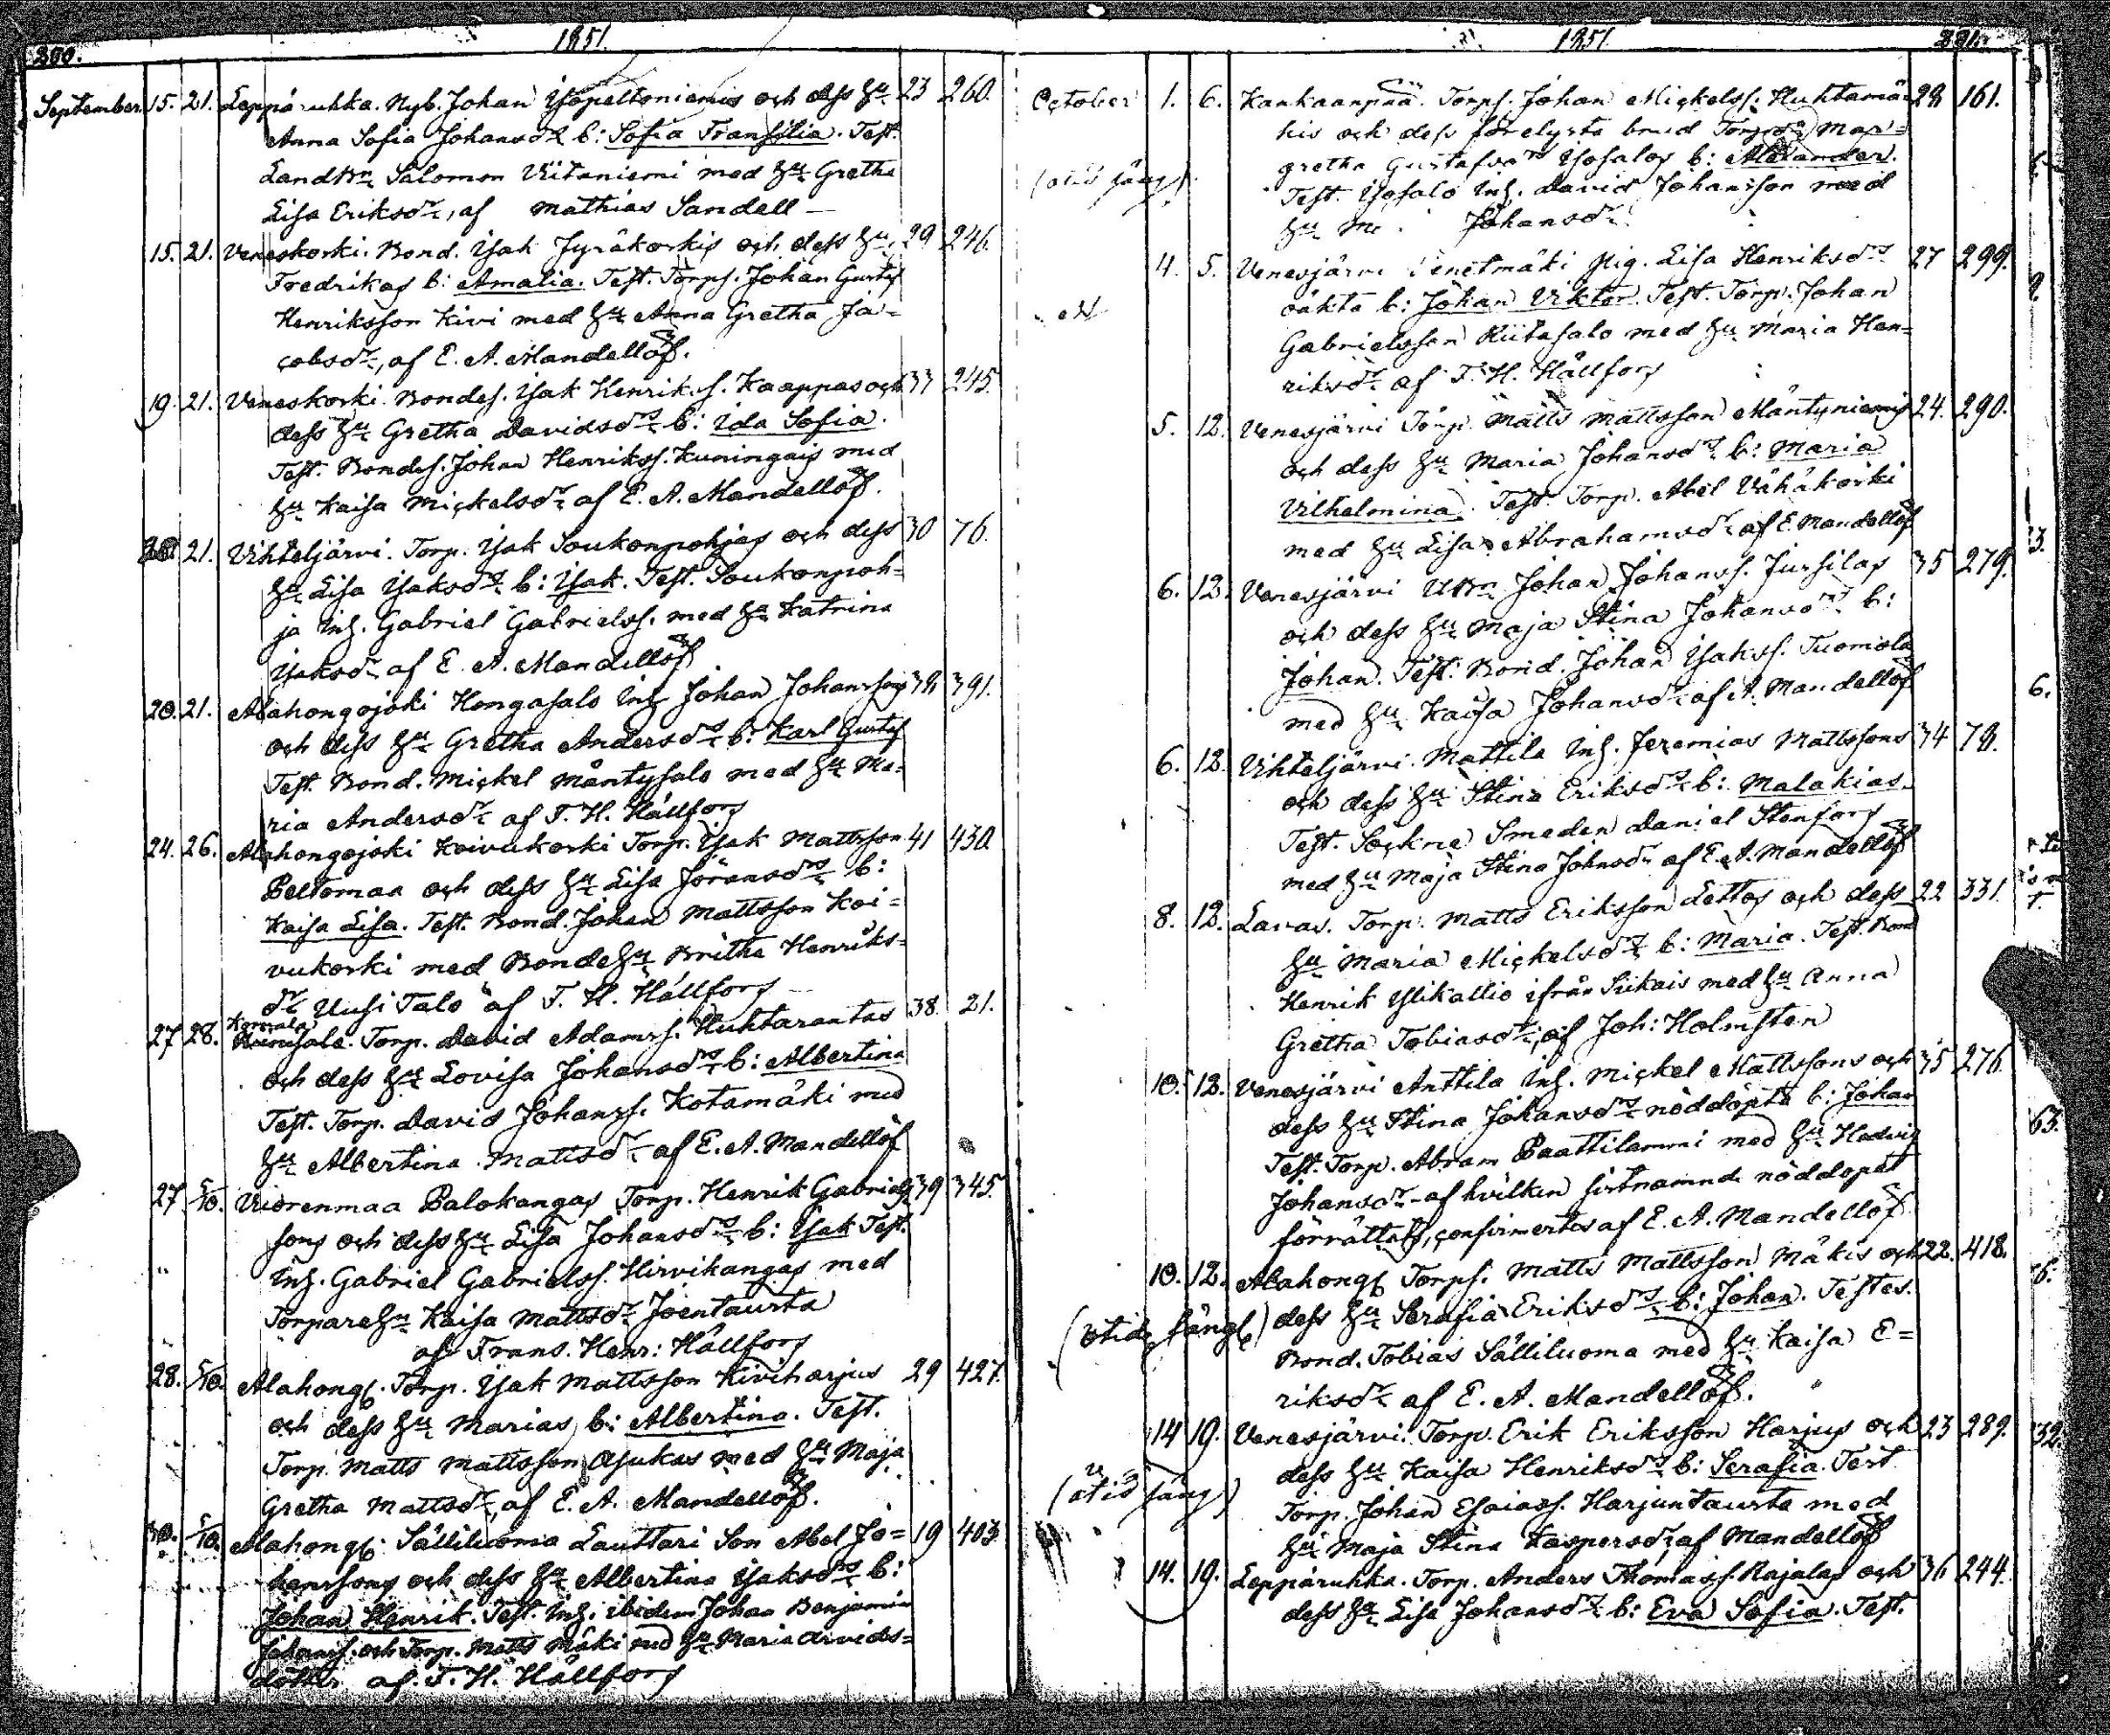 1851.
September 15. 21. Leppäruhka. Nyb. Johan Ysopeltoniemis och dess hu 23 260.
Anna Sofia Johansdrs b: Sofia Transilia. Test.
Landbn Salomon Viitaniemi med hu Gretha
Lisa Eriksdr, af Mathias Sandell —
15. 21. Veneskoski. Bond. Isak Jyräkoskis och dess hu 29 246.
Fredrikas b: Amalia. Test. Torps. Johan Gustaf
Henriksson Kivi med hu Anna Gretha Ja=
cobsdr, af E. A. Mandellöf.
19. 21. Veneskoski. Bondes. Isak Henriks. Kaappas och 33 245.
dess hu Gretha Davidsdrs b: Ida Sofia.
Test. Bondes. Johan Henrikss. Kuningais med
hu Kaisa Mickelsdr af E. A. Mandellöf.
21. Vihteljärvi. Torp. Isak Soukonpohjas och dess 30 76.
hu Lisa Isaksdrs b: Isak. Test. Soukonpoh=
ja Inh. Gabriel Gabrielss. med hu Katrina
Isaksdr af E. A. Mandellöf
20. 21. Alahongojoki Hongasalo Inh Johan Johanssons 38 391.
och dess hu Gretha Andersdrs b: Karl Gustaf
Test. Bond. Mickel Mäntysalo med hu Ma=
ria Andersdr af F. H. Hällfors
24. 26. Alahongojoki Koivukoski Torp. Isak Mattsson 41 430.
Peltomaa och dess hu Lisa Göransdrs b:
Kaisa Lisa. Test. Bond. Johan Mattsson Koi=
vukoski med Bondehu Britha Henriks=
dr Uusi Talo af F. H. Hällfors
27. 28. Torp. David Adamss. Huhtarantas 38. 21.
och dess hu Lovisa Johansdrs b: Albertina
Test. Torp. David Johanss. Kotamäki med
hu Albertina Mattsdr af E. A. Mandellöf
27 5/10. Vuorenmaa Palokangas Torp. Henrik Gabriels= 39 345.
sons och dess hu Lisa Johansdrs b: Isak Test.
Inh. Gabriel Gabrielss. Hirvikangas med
Torparehu Kaisa Mattsdr Joentausta
af Frans. Henr: Hällfors
28. 5/10. Alahongs. Torp. Isak Mattsson Kiviharjus 29 427.
och dess hu Marias, b: Albertina. Test.
Torp. Matts Mattsson Asukas med hu Maja
Gretha Mattsdr, af E. A. Mandellöf.
30. 5/10. Alahongs. Sälliluoma Lauttari Son Abel Jo= 19 403
hanssons och dess hu Albertina Isaksdrs b:
Johan Henrik. Test. Inh. ibidem Johan Benjamin
Johanss. och Torp. Matts Mäki med hu Maria Davids=
dotter af. F. H. Hällfors
1851. 331.
October 1. 6. Kankaanpää. Torps. Johan Mickelss. Huhtamä= 28 161.
kis och dess förelysta brud Mar=
gretha Gustafsdrs Ysosalos b: Alexander.
Test. Ysosalo Inh. David Johansson med
hu Johansdr
4. 5. Venesjärvi Venetmäki Pig. Lisa Henriksdrs 27 299.
oäkta b: Johan Viktor. Test. Torp. Johan
Gabrielsson Riitasalo med hu Maria Hen=
riksdr af F. H. Hällfors
5. 12. Venesjärvi Torp. Matts Mattsson Mäntyniemis 24. 290.
och dess hu Maria Johansdrs b: Maria
Vilhelmina. Test. Torp. Abel Vähäkoski
med hu Lisa Abrahamsdr af E. Mandellöf
6. 12. Venesjärvi Johan Johanss. Jussilas 35 279.
och dess hu Maja Stina Johansdrs b:
Johan. Test. Bond. Johan Isakss. Tuomola
med hu Kaisa Johansdr af A. Mandellöf
6. 12. Vihteljärvi. Mattila Inh. Jeremias Mattssons 34 78.
och dess hu Stina Eriksdrs b: Malakias.
Test. Sockne Smeden Daniel Stenfors
med hu Maja Stina Johnsdr af E. A. Mandellöf
8. 12. Lavas. Torp. Matts Eriksson Lettos och dess 22 331.
hu Maria Mickelsdrs b: Maria. Test. Bond
Henrik Ylikallio ifrån Siikais med hu Anna
Gretha Tobiasdr, af Joh: Holmsten
10. 12. Venesjärvi Anttila Inh. Mickel Mattssons och 35 276.
dess hu Stina Johansdrs nöddöpta b: Johan
Test. Torp. Abram Paattilammi med hu Hedvig
Johansdr af hvilken sistnämnde nöddopet
förrättats, confirmertes af E. A. Mandellöf
10. 12. Alahongs Torps. Matts Mattsson Mäkis och 22. 418.
dess hu Serafia Eriksdrs b: Johan. Testes.
Bond. Tobias Sälliluoma med hu Kaisa E=
riksdr af E. A. Mandellöf.
14 19. Venesjärvi. Torp. Erik Eriksson Harjus och 23 289.
dess hu Kaisa Henriksdrs b: Serafia. Test.
Torp. Johan Esaiass. Harjuntausta med
hu Maja Stina Kaspersdr af Mandellöf
14. 19. Leppäruhka. Torp. Anders Thomass. Rajalas och 36 244.
dess hu Lisa Johansdrs b: Eva Sofia. Test.